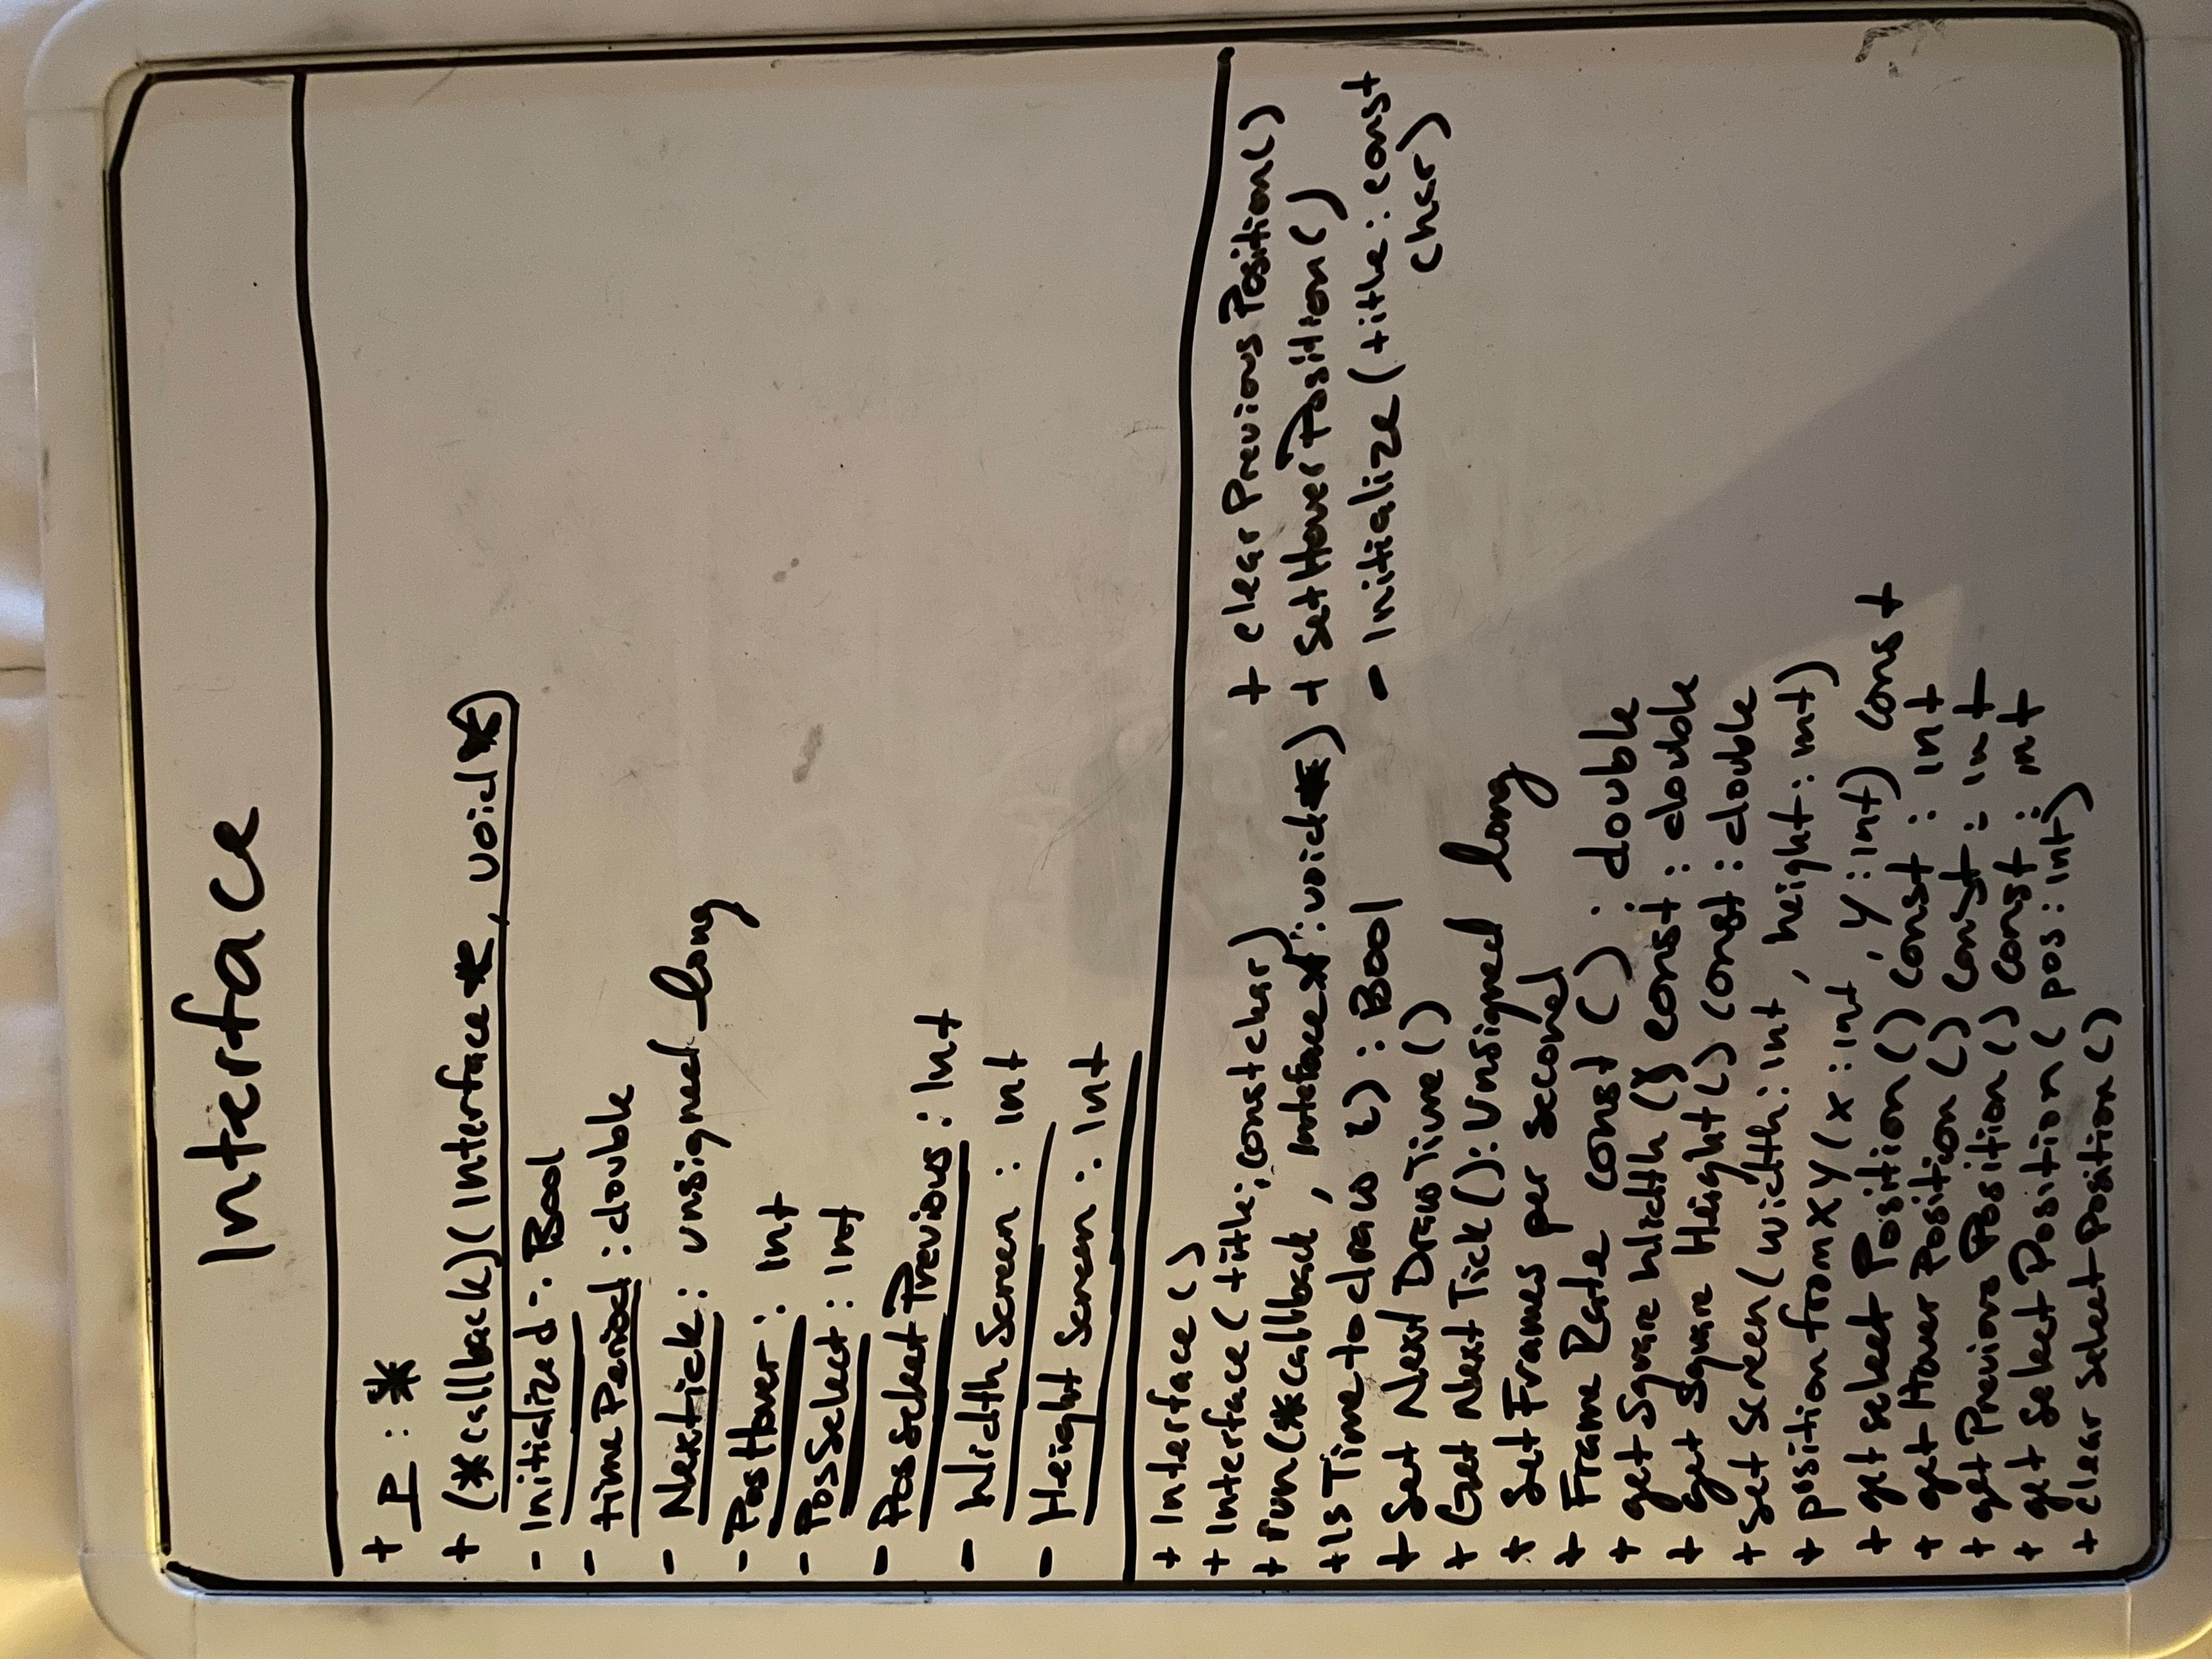 Interface
+ P : *
+ (*callback)(Interface*, void*)
- Initialized : Bool
- timePeriod : double
- Nextick : unsigned long
- PosHover : int
- PosSelect : int
- PosSelectPrevious : Int
- WidthScreen : int
- Height Screen : Int
+ Interface()
+ Interface(title: const char)
+ run(*callback, Interface*: void*)
+ Is Time to draw () : Bool
+ Set Next Draw Time()
+ Get Next Tick(): Unsigned long
+ Set Frames per second
+ Frame Rate const () : double
+ get Square Width () const : double
+ get Square Height() const : double
+ Set Screen(width: int, height: int)
+ position from XY(x: int, y: int) const
+ get select Position() const : int
+ get Hover Position() const : int
+ get Previous Position() const : int
+ get Select Position(pos: int)
+ clear select Position()
+ clearPreviousPosition()
+ SetHoverPosition()
- Initialize(title: const
char)